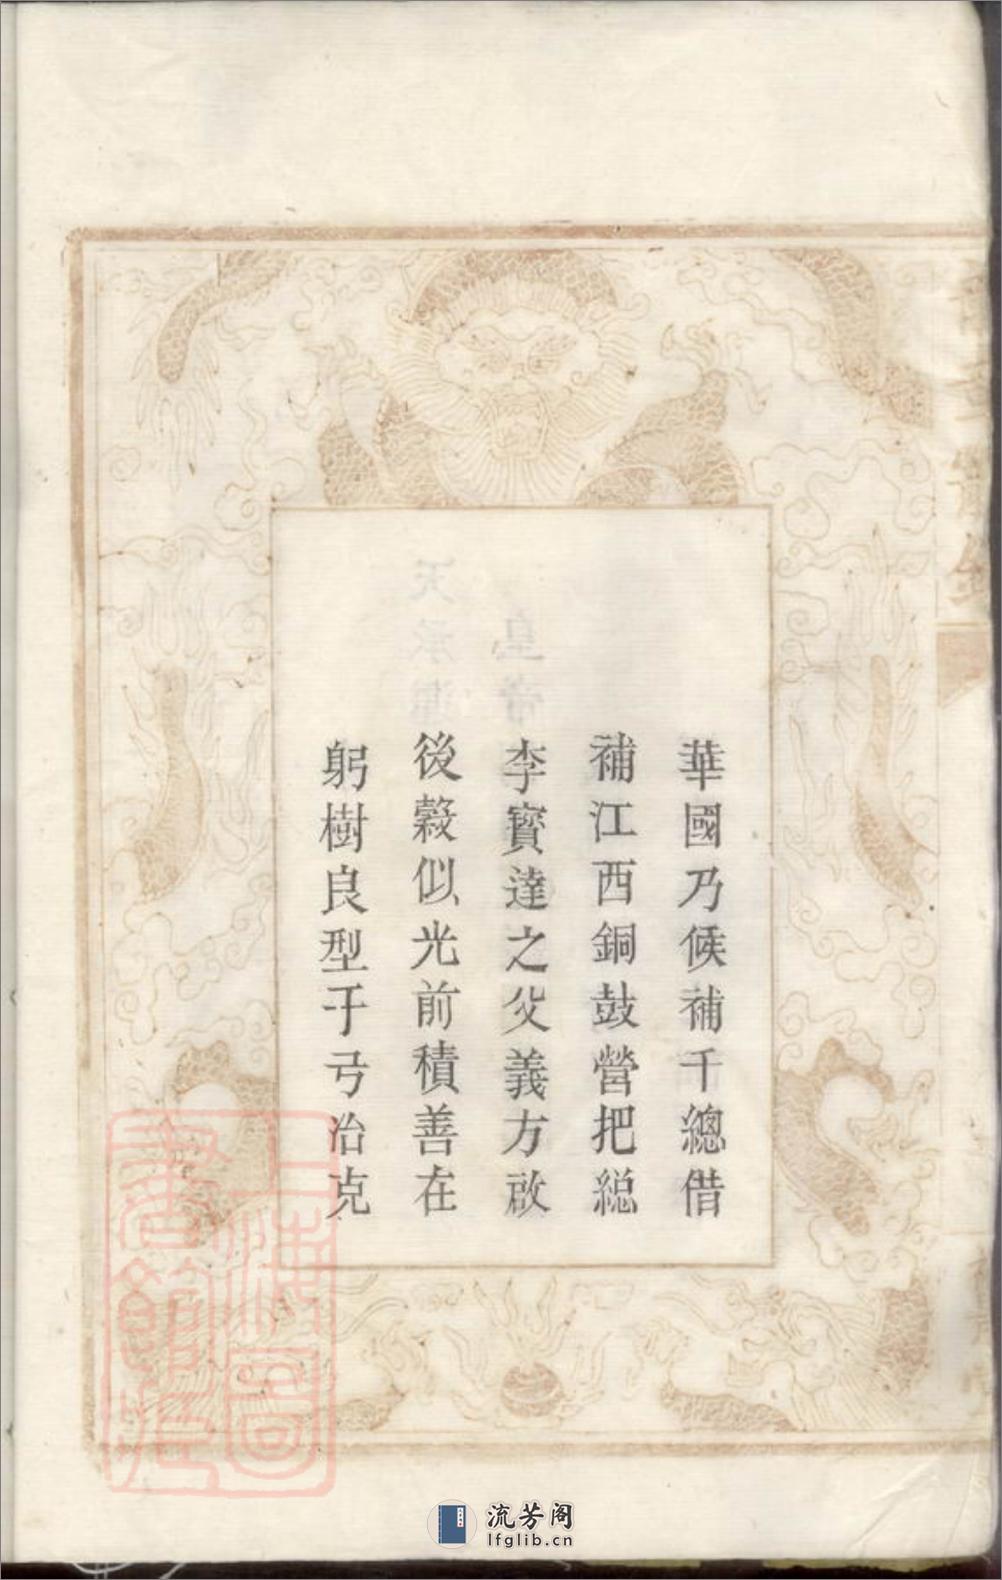 華國乃候補千總借
補江西銅鼓營把総
李寳達之父義方啟
後穀似光前積善在
躬樹良型于弓冶克
上海圖
書館藏
流芳阁
lfglib.cn